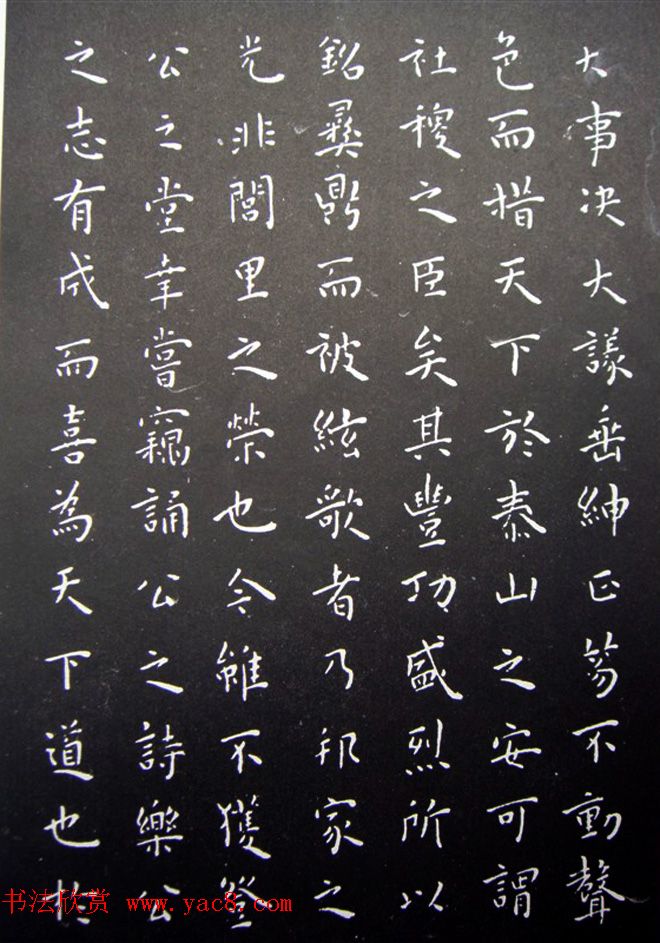 大事决大議垂紳正笏不動聲
色而措天下於泰山之安可謂
社稷之臣矣其豐功盛烈所以
銘彝鼎而被絃歌者乃邦家之
光非閭里之榮也今雖不獲登
公之堂幸嘗竊誦公之詩樂公
之志有成而喜為天下道也於
书法欣赏 www.yac8.com